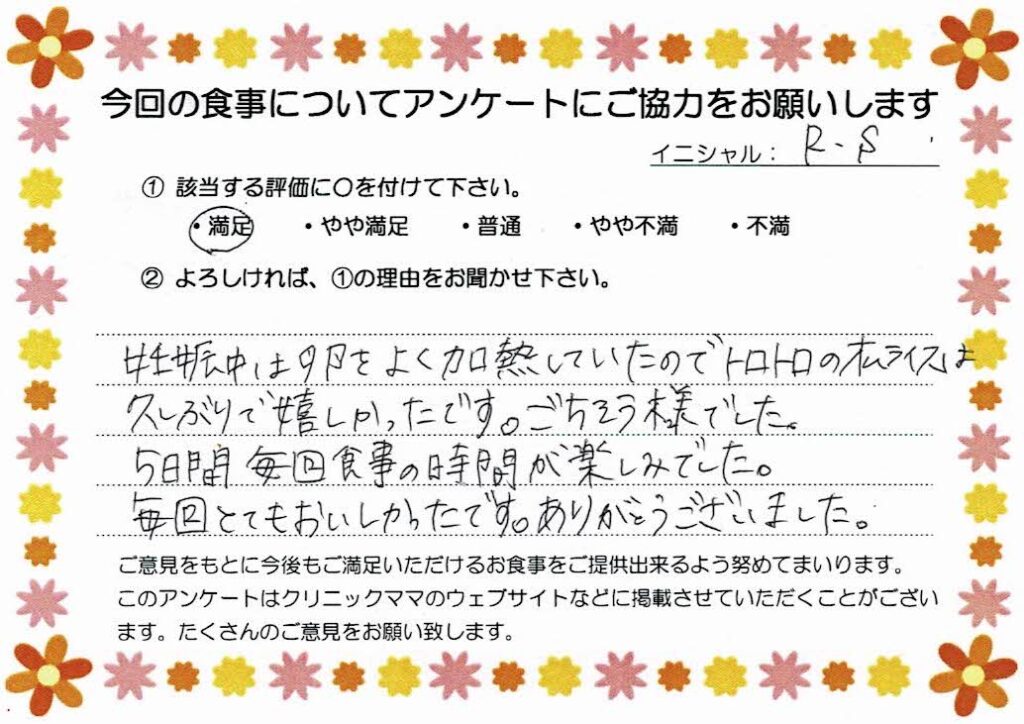 今回の食事についてアンケートにご協力をお願いします
イニシャル： R.S
① 該当する評価に〇を付けて下さい。
・満足 ・やや満足 ・普通 ・やや不満 ・不満
② よろしければ、①の理由をお聞かせ下さい。
妊娠中は卵をよく加熱していたのでトロトロのオムライスは
久しぶりで嬉しかったです。ごちそう様でした。
5日間毎回食事の時間が楽しみでした。
毎回とてもおいしかったです。ありがとうございました。
ご意見をもとに今後もご満足いただけるお食事をご提供出来るよう努めてまいります。
このアンケートはクリニックママのウェブサイトなどに掲載させていただくことがござい
ます。たくさんのご意見をお願い致します。